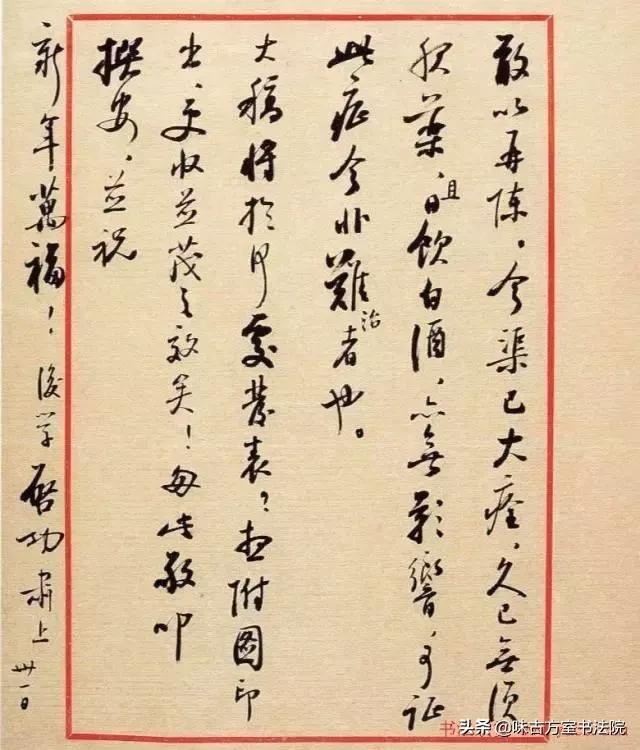 敢以再陈。今渠已大痊,久已無須
服藥,且日飲白酒,亦無影響,可证
此症今非難治者也。
大稿将於何處發表?想附圖印
出,更收並茂之效矣!匆此敬叩
撰安,並祝
新年萬福!後学启功肃上 卅一日
头条 @味古方室书法院